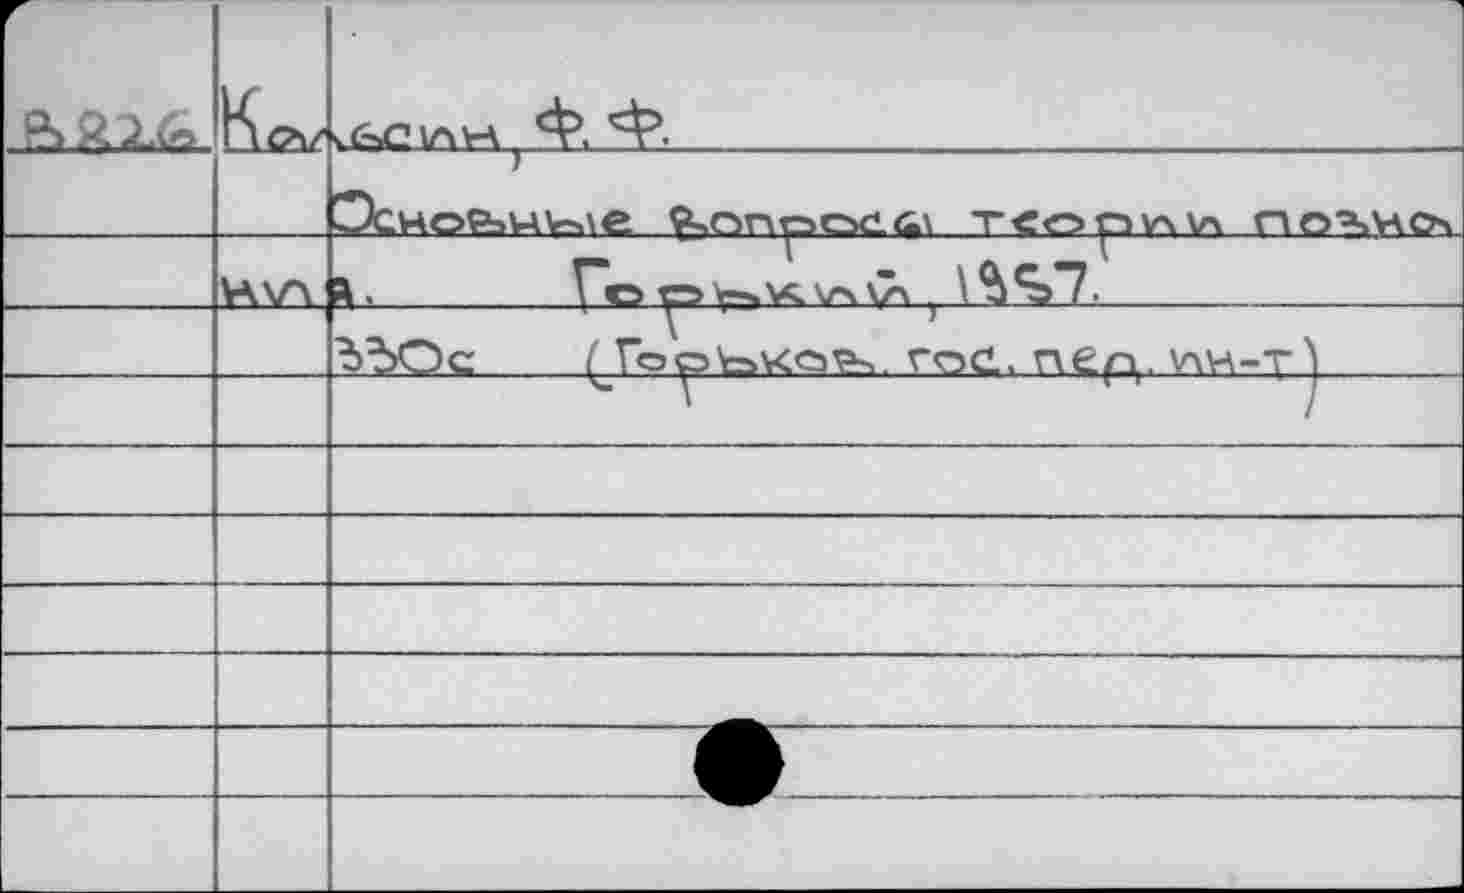 В826 Кальсин, Ф. Ф.
Основные вопросы теории позна
ния. Горький, 1957.
330с (Горьков. гос. пед. ин-т)